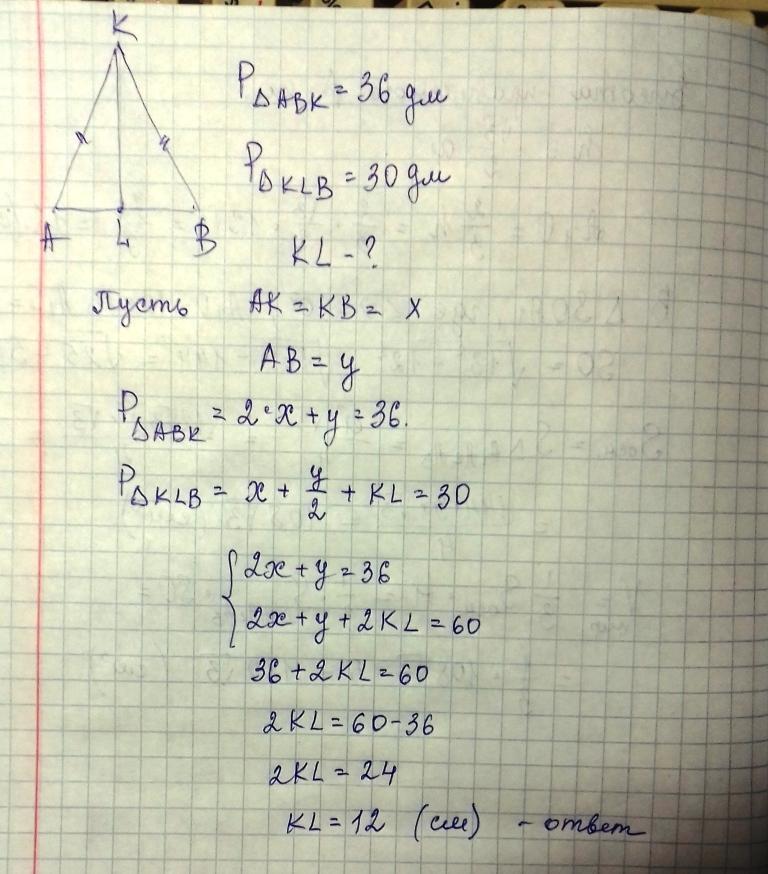 K
A L B
P ΔABK = 36 дм
P ΔKLB = 30 дм
KL - ?
Пусть AK = KB = x
AB = y
P ΔABK = 2·x + y = 36.
P ΔKLB = x + y/2 + KL = 30
{ 2x + y = 36
2x + y + 2KL = 60
36 + 2KL = 60
2KL = 60 - 36
2KL = 24
KL = 12 (см) - ответ